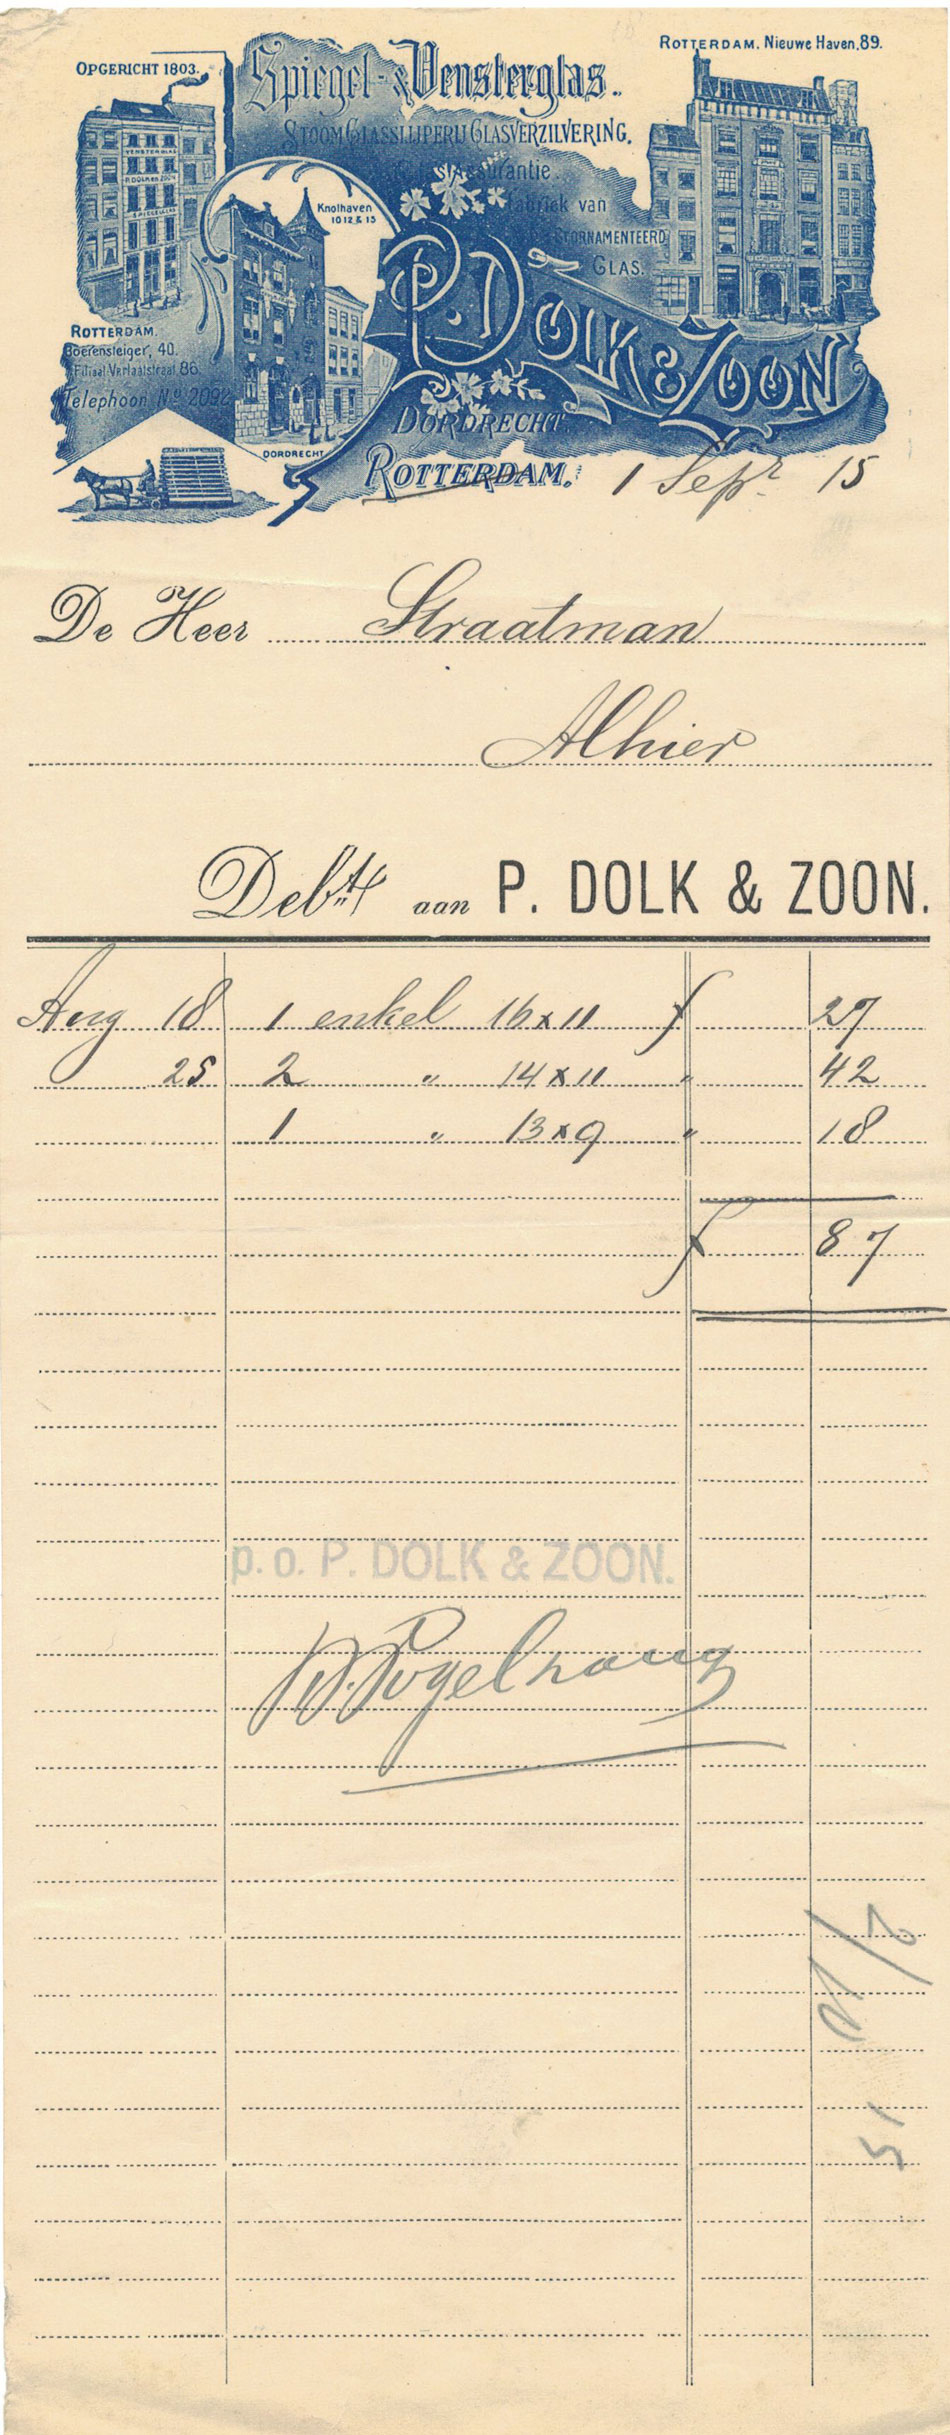 OPGERICHT 1803.
ROTTERDAM. Nieuwe Haven, 89.
Spiegel- & Vensterglas.
STOOMGLASSLIJPERIJ GLASVERZILVERING.
Glas Assurantie.
Fabriek van
GEORNAMENTEERD
GLAS.
VENSTERGLAS
P. DOLK EN ZOON
SPIEGELGLAS
Knolhaven
10 12 & 15
P. DOLK & ZOON
ROTTERDAM.
Boerensteiger, 40.
Filiaal Verlaatstraat 86.
Telephoon No 2092
DORDRECHT
DORDRECHT
ROTTERDAM. 1 Sepr 15
De Heer Straatman
Alhier
Debt aan P. DOLK & ZOON.
Aug 18 1 enkel 16 x 11 f 27
25 2 " 14 x 11 " 42
1 " 13 x 9 " 18
f 87
p. o. P. DOLK & ZOON.